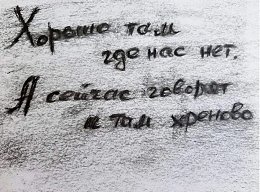 Хорошо там
где нас нет.
А сейчас говорят
и там хреново